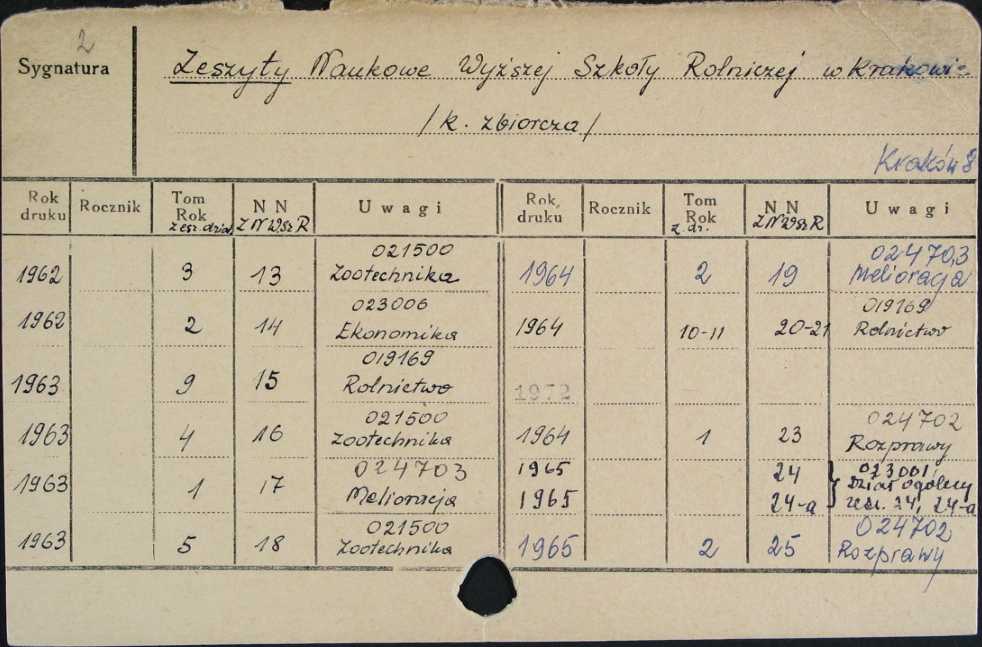 2
Sygnatura
Zeszyty Naukowe Wyższej Szkoły Rolniczej w Krakowi-
/k. zbiorcza/
Kraków 8
Rok druku Rocznik Tom Rok zesz. dział N N Z N W Sz R Uwagi Rok druku Rocznik Tom Rok z. dz. N N Z N W Sz R Uwagi
1962 3 13 021500 Zootechnika 1964 2 19 024703 Melioracja
1962 2 14 023006 Ekonomika 1964 10-11 20-21 019169 Rolnictwo
1963 9 15 019169 Rolnictwo 1972
1963 4 16 021500 Zootechnika 1964 1 23 024702 Rozprawy
1963 1 17 024703 Melioracja 1965 24 023001 Dział ogólny
1965 24-a zesz. 24, 24-a
1963 5 18 021500 Zootechnika 1965 2 25 024702 Rozprawy